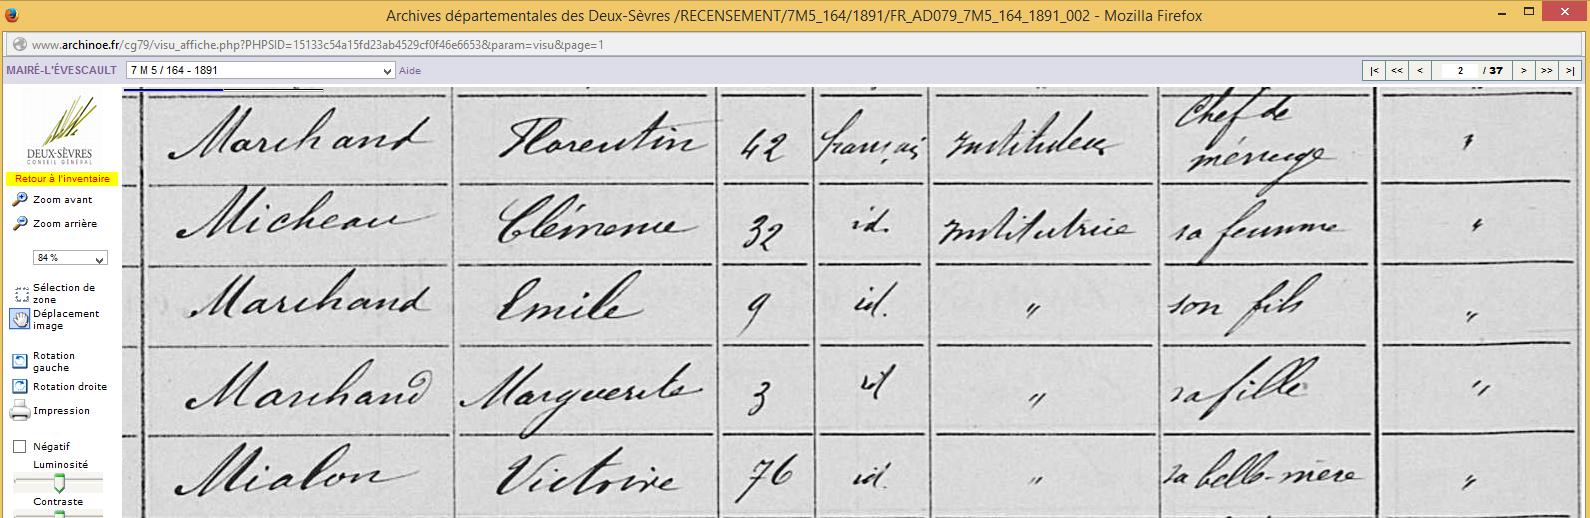 Archives départementales des Deux-Sèvres /RECENSEMENT/7M5_164/1891/FR_AD079_7M5_164_1891_002 - Mozilla Firefox
www.archinoe.fr/cg79/visu_affiche.php?PHPSID=15133c54a15fd23ab4529cf0f46e6653&param=visu&page=1
MAIRÉ-L'ÉVESCAULT 7 M 5 / 164 - 1891 Aide |< << < 2 / 37 > >> >|
DEUX-SÈVRES
CONSEIL GÉNÉRAL
Retour à l'inventaire
Zoom avant
Zoom arrière
84 %
Sélection de
zone
Déplacement
image
Rotation
gauche
Rotation droite
Impression
Négatif
Luminosité
Contraste
Marchand Florentin 42 français Instituteur Chef de ménage "
Micheau Clémence 32 id. Institutrice sa femme "
Marchand Emile 9 id. " son fils "
Marchand Marguerite 3 id " sa fille "
Mialon Victoire 76 id. " sa belle-mère "